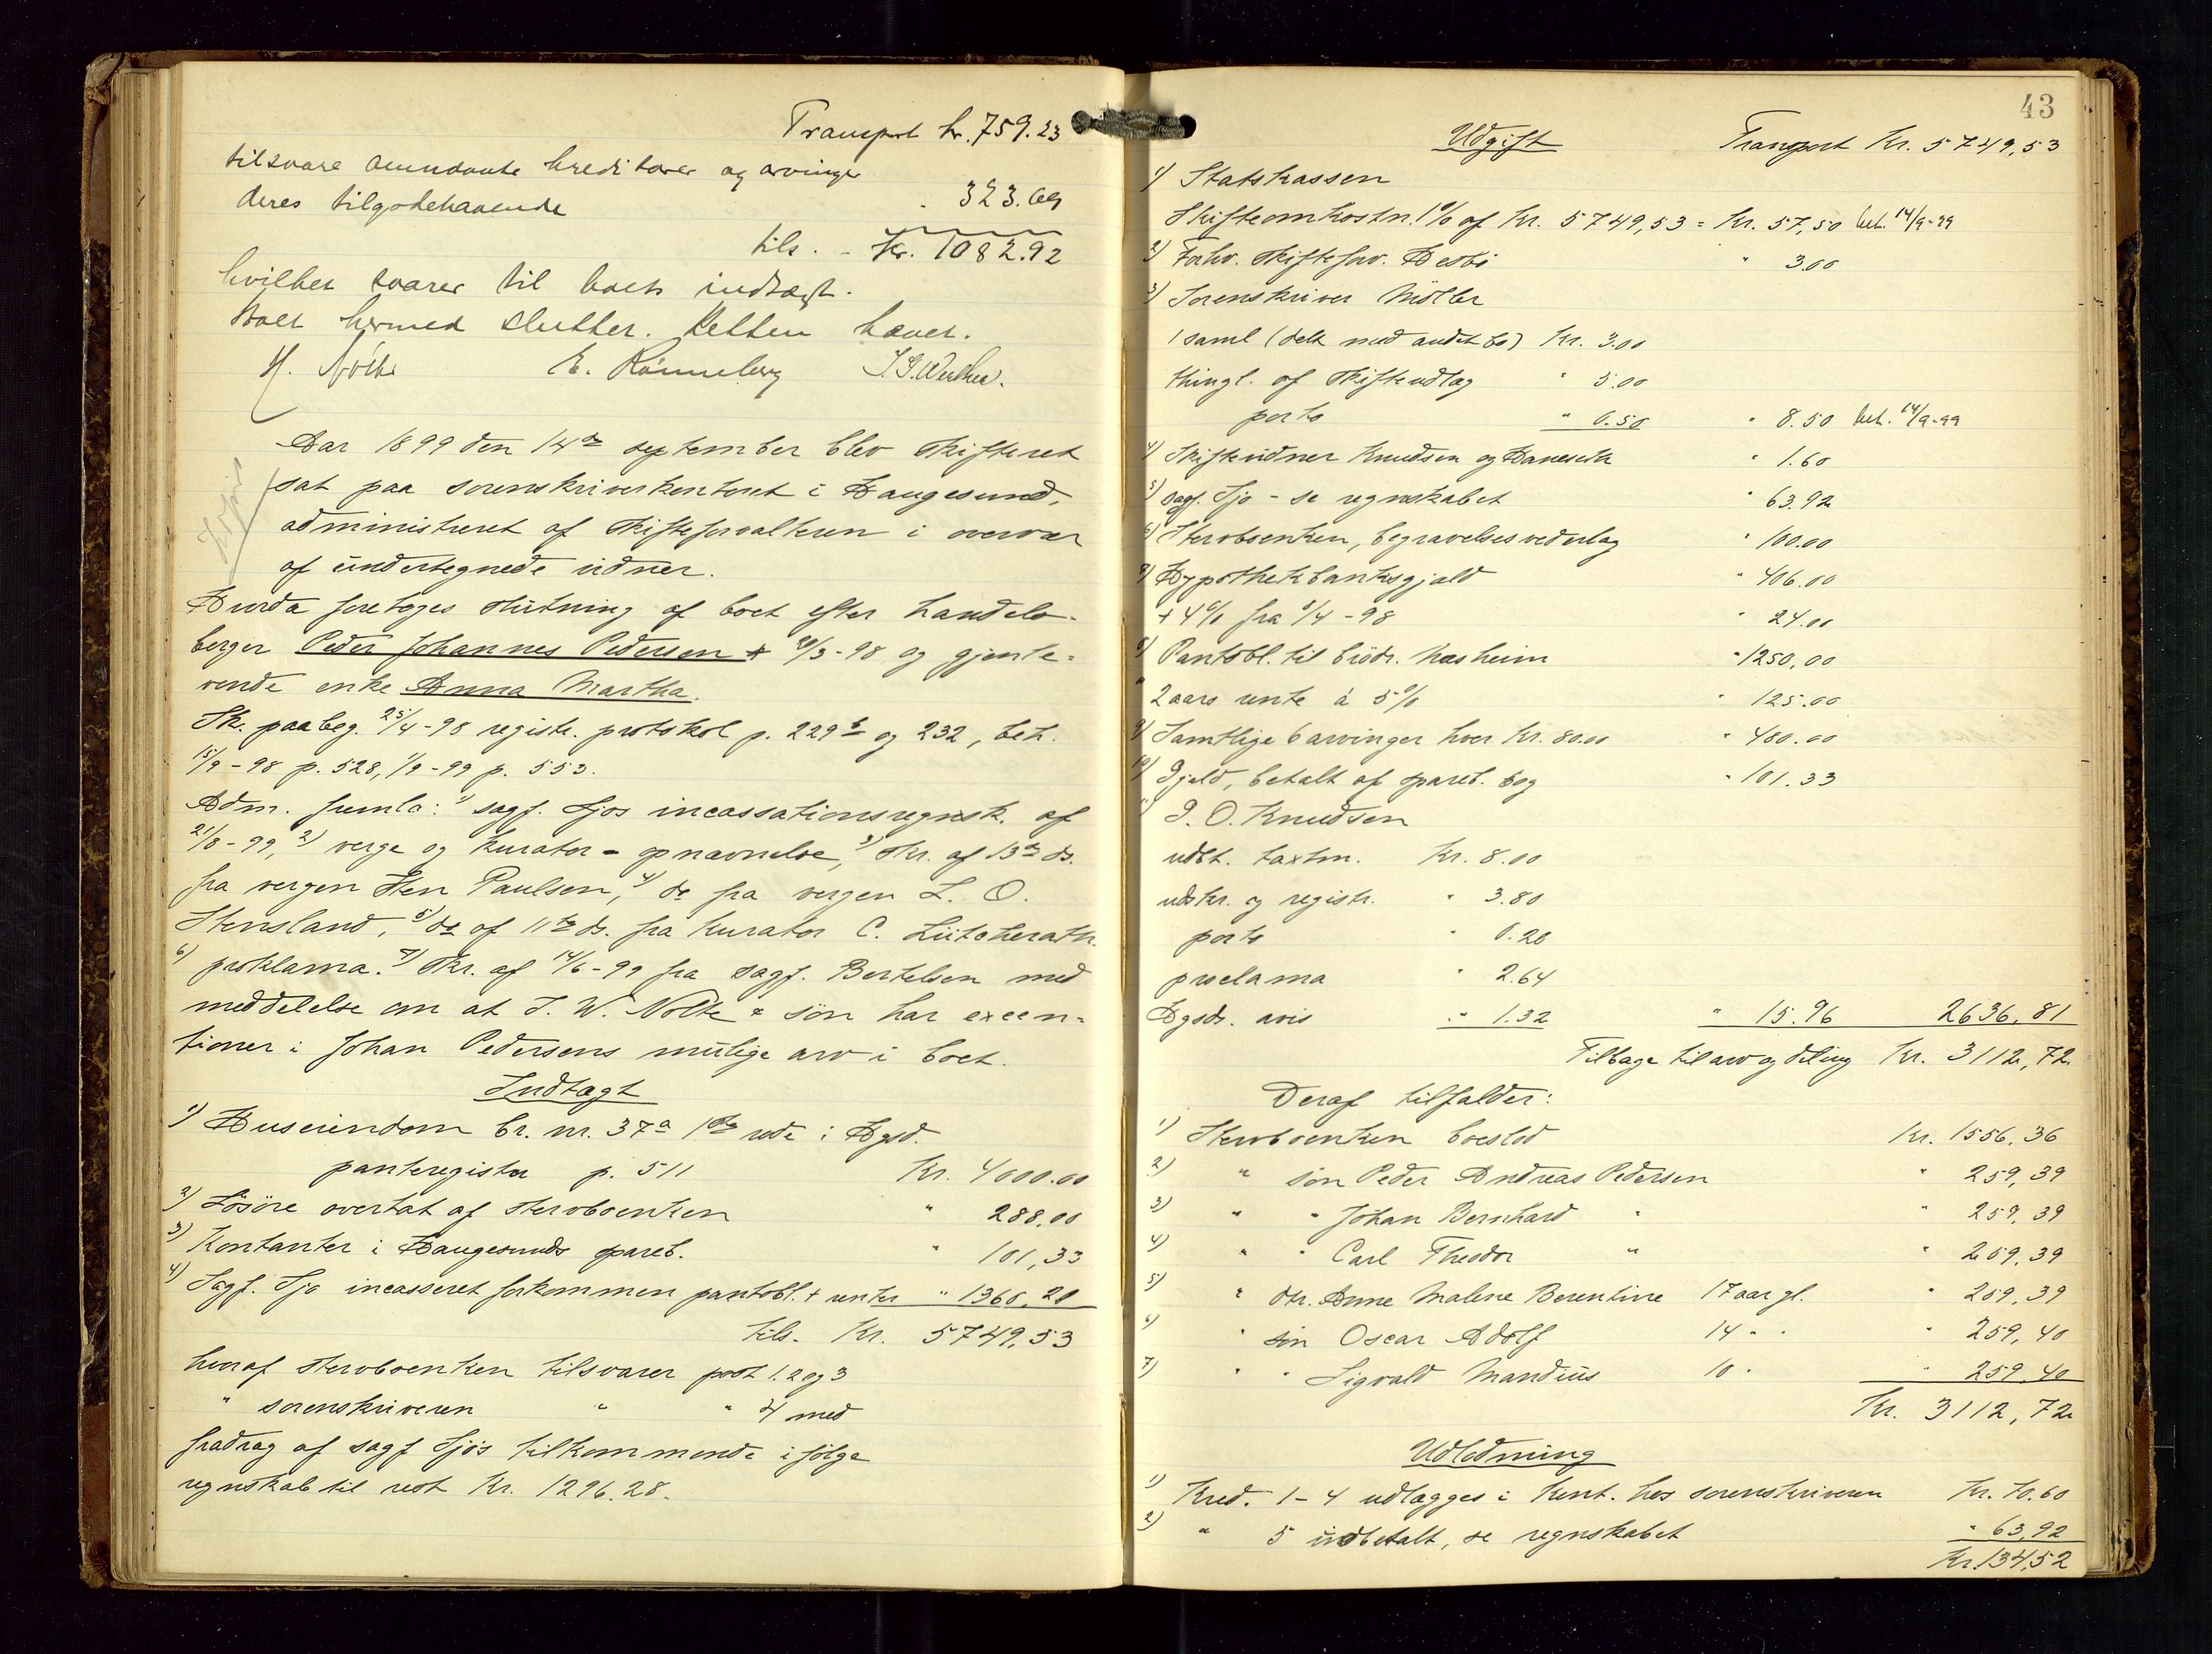 Transport kr. 759.23
tilsvare kreditorer og arvinger
deres tilgodehavende " 323.69
tils. - Kr. 1082.92
hvilket svarer til boets indtægt.
Boet hermed sluttet. Retten hævet.
H. E. Rönneberg
Aar 1899 den 14de september blev skifteret
sat paa sorenskriverkontoret i Haugesund,
administreret af skifteforvalteren i overvær
af undertegnede vidner.
Hvorda foretoges slutning af boet efter handels-
borger Peder Johannes Pedersen /3-98 og gjenle-
vende enke Anna Martha.
Sk. paabeg. 25/4-98 registr. protokol p. 229b og 232, beh.
15/9-98 p. 528, 1/9-99 p. 553.
Adm. fremla: 1) sagf. Sjos incassationsregnsk. af
21/8-99, 2) verge og kurator-opnævnelse, 3) skr. af 13de ds.
fra vergen Sten Paulsen, 4) do fra vergen L. O.
Stensland, 5) do af 11te ds. fra kurator C. Lütcherath
6) proklama. 7) skr. af 14/6-99 fra sagf. Bertelsen med
meddelelse om at J. W. Nolte & sön har execu-
tioner i Johan Pedersens mulige arv i boet.
Indtægt
1) Huseiendom br. nr. 37a 1ste rode i Hgsd.
panteregister p. 511 Kr. 4000.00
2) Lösöre overtat af stervboenken " 288.00
3) Kontanter i Haugesunds spareb. " 101,33
4) Sagf. Sjo incasseret forkommen pantobl. + renter " 1360,20
tils. Kr. 5749,53
heraf stervboenken tilsvarer post 1. 2 og 3
" sorenskriveren " " 4 med
fradrag af sagf Sjös tilkommende ifölge
regnskab til rest Kr. 1296.28.
43
Udgift Transport Kr. 5749,53
1) Statskassen
Skifteomkostn. 1% af Kr. 5749,53 = Kr. 57,50 bet. 14/9-99
2) Forhv. skifteforv. Hesbö " 3.00
3) Sorenskriver Möller
1 saml (delt med andet bo) Kr. 3.00
thingl. af skifteudlæg " 5.00
porto " 0.50 " 8.50 bet. 14/9-99
4) Skiftevidner Knudsen og Haneseth " 1.60
5) sagf. Sjo - se regnskabet " 63.92
6) Stervboenken, begravelsesvederlag " 100.00
7) Hypothekbanksgjæld " 406.00
+ 4% fra /4-98 " 24.00
8) Pantobl. til brödr. Næsheim " 1250,00
" 2 aars rente à 5% " 125.00
9) Samtlige 6 arvinger hver Kr. 80.00 " 480.00
10) Gjeld, betalt af spareb. bog " 101.33
11) P. O. Knudsen
udbt. taxtm. Kr. 8.00
udskr. og registr. " 3.80
porto " 0.20
proclama " 2.64
Hgsds. avis " 1.32 " 15.96 2636,81
Tilbage til arv og deling Kr. 3112,72.
Deraf tilfalder:
1) Stervboenken boeslod Kr. 1556,36
2) " sön Peder Andreas Pedersen " 259,39
3) " " Johan Bernhard " " 259,39
4) " " Carl Theodor " " 259,39
5) " dtr. Anne Malene Berentine 17 aar gl. " 259,39
6) " sön Oscar Adolf 14 " " " 259,40
7) " " Sigvald Mandius 10 " " 259,40
Kr. 3112,72
Udlodning
1) Kred. 1-4 udlægges i kont. hos sorenskriveren Kr. 70.60
2) " 5 indbetalt, se regnskabet " 63,92
Kr. 134,52